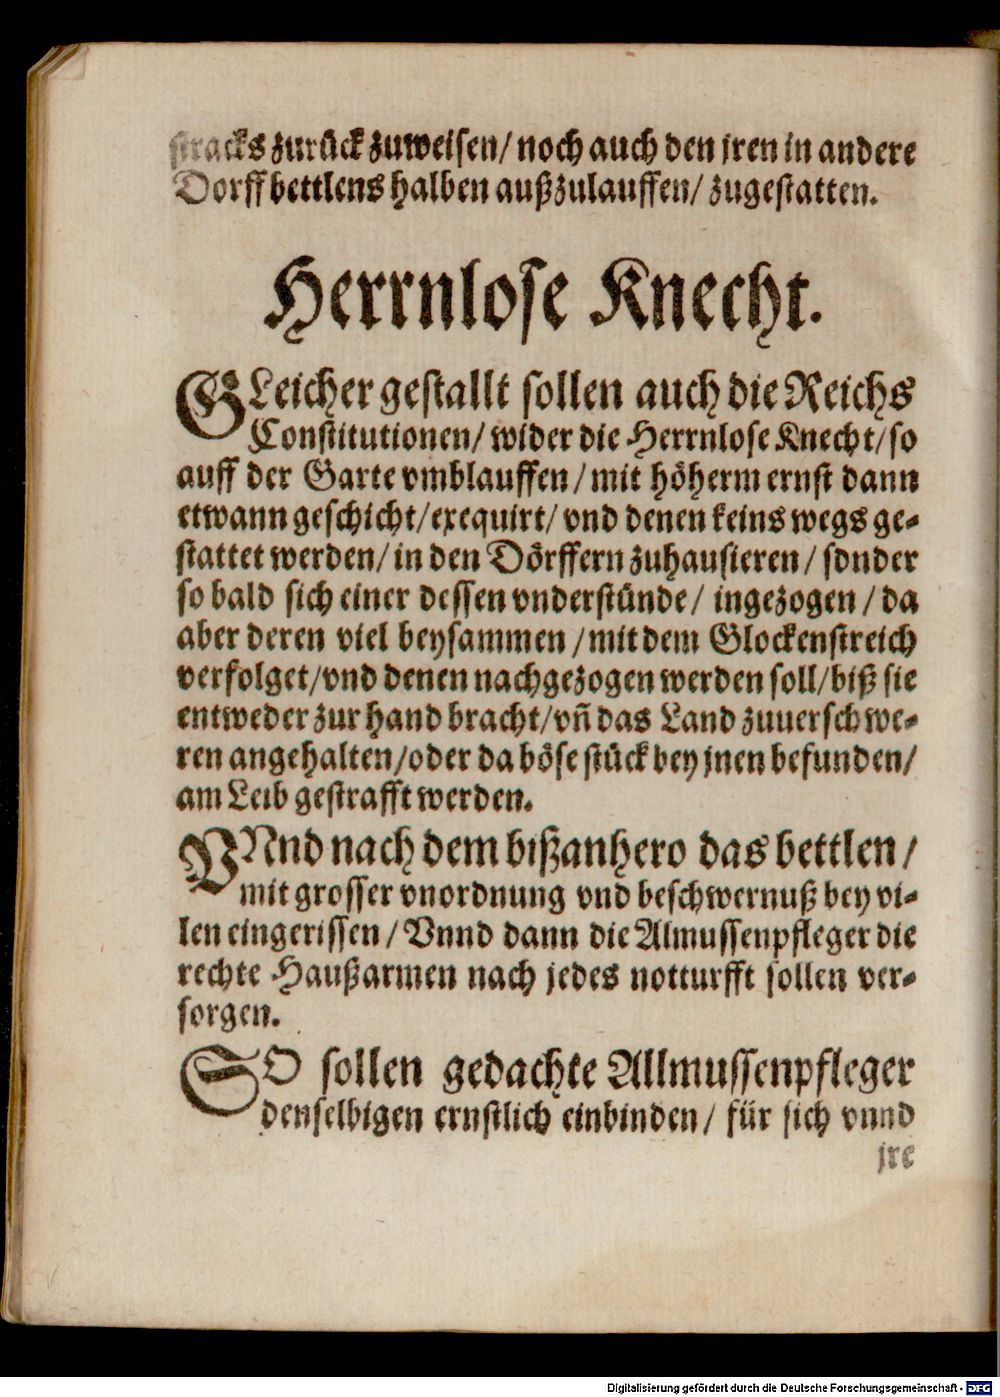 stracks zurück zuweisen/ noch auch den jren in andere
Dorff bettlens halben außzulauffen/ zugestatten.
Herrnlose Knecht.
GLeicher gestallt sollen auch die Reichs
Constitutionen/ wider die Herrnlose Knecht/ so
auff der Garte vmblauffen/ mit höherm ernst dann
etwann geschicht/ exequirt/ vnd denen keins wegs ge-
stattet werden/ in den Dörffern zuhausieren/ sonder
so bald sich einer dessen vnderstünde/ ingezogen/ da
aber deren viel beysammen/ mit dem Glockenstreich
verfolget/ vnd denen nachgezogen werden soll/ biß sie
entweder zur hand bracht/ vñ das Land zuuerschwe-
ren angehalten/ oder da böse stück bey jnen befunden/
am Leib gestrafft werden.
VNnd nach dem bißanhero das bettlen/
mit grosser vnordnung vnd beschwernuß bey vi-
len eingerissen/ Vnnd dann die Almussenpfleger die
rechte Haußarmen nach jedes notturfft sollen ver-
sorgen.
SO sollen gedachte Allmussenpfleger
denselbigen ernstlich einbinden/ für sich vnnd
jre
Digitalisierung gefördert durch die Deutsche Forschungsgemeinschaft - DFG